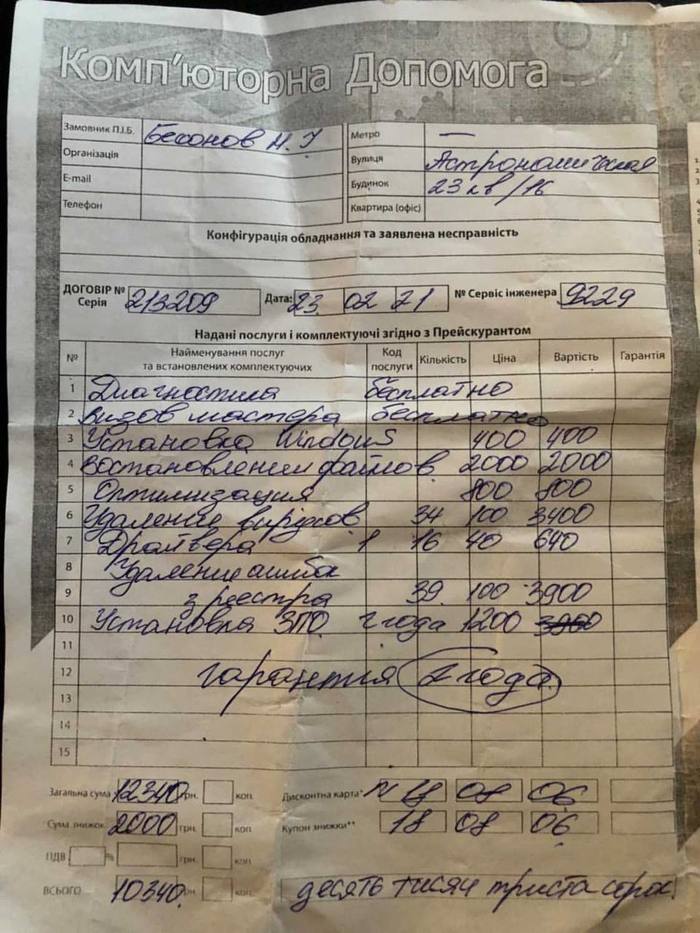 Комп'юторна Допомога
Замовник П.І.Б. Бесонов Н. У
Організація
E-mail
Телефон
Метро —
Вулиця Астрономическая
Будинок 23 кв/16
Квартира (офіс)
Конфігурація обладнання та заявлена несправність
ДОГОВІР № Серія 213209 Дата: 23 02 21 № Сервіс інженера 9229
Надані послуги і комплектуючі згідно з Прейскурантом
№ Найменування послуг та встановлених комплектуючих Код послуги Кількість Ціна Вартість Гарантія
1 Диагностика бесплатно
2 визов мастера бесплатно
3 Установка Windows 400 400
4 востановлении файлов 2000 2000
5 Оптимизация 800 800
6 Удаление вирусов 34 100 3400
7 Драйвера 1 16 40 640
8 Удаление ошибок
9 з реестра 39 100 3900
10 Установка ЗПО 2 года 1200
11
12 гарантия 2 года.
13
14
15
Загальна сума 12340 грн. коп.
Дисконтна карта* N 18 08 06
Сума знижок 2000 грн. коп.
Купон знижки** 18 08 06
ПДВ % грн. коп.
ВСЬОГО 10340 грн коп.
десять тисяч триста сорок